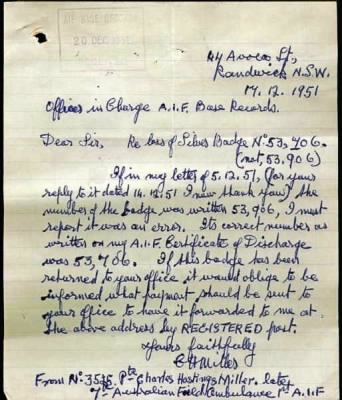 20 DEC 1951
44 Avoca St,
Randwick N.S.W.
17.12.1951
Officer in Charge A.I.F. Base Records.
Dear Sir, Re loss of Silver Badge No 53,706.
(not, 53,906)
If in my letter of 5.12.51, (for your
reply to it dated 14.12.51 I now thank you) the
number of the badge was written 53,906, I must
report it was an error. Its correct number as
written on my A.I.F. Certificate of Discharge
was 53,706. If this badge has been
returned to your office it would oblige to be
informed what payment should be sent to
your office to have it forwarded to me at
the above address by REGISTERED post.
Yours faithfully
C H Miller
From No. Pte Charles Hastings Miller. late
7th Australian Field Ambulance 1st A.I.F